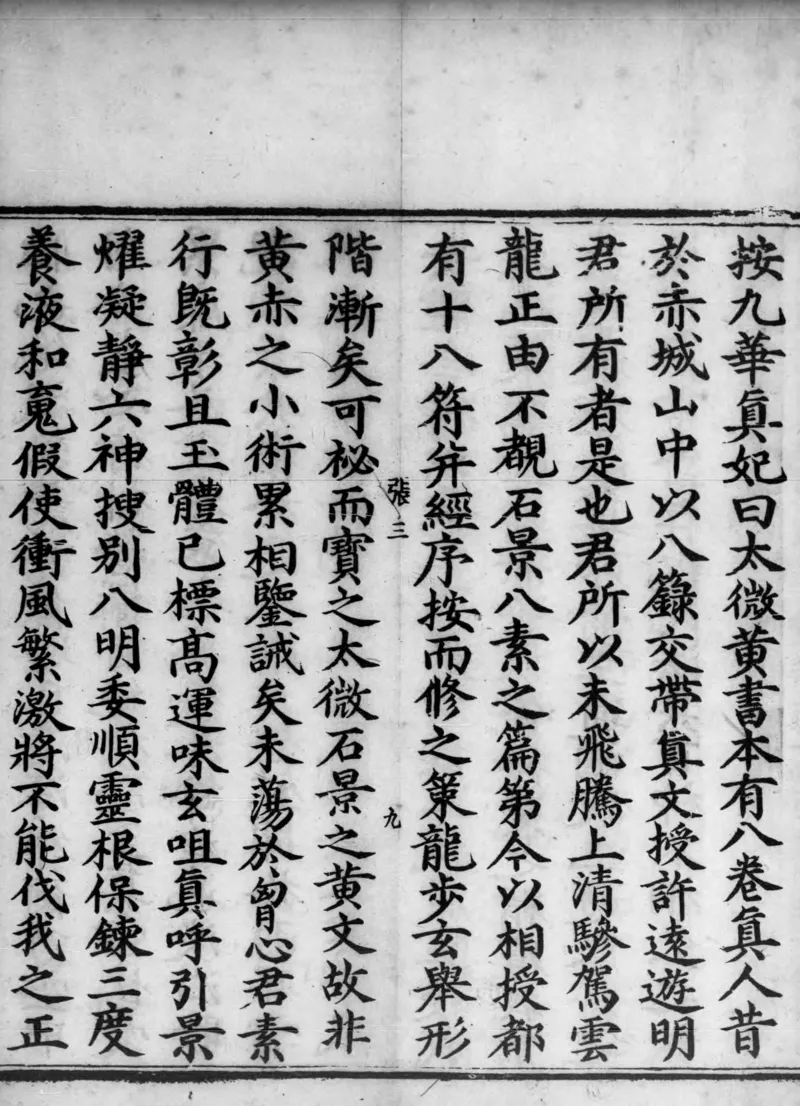 按九華真妃曰太微黄書本有八卷真人昔
於赤城山中以八籙交帶真文授許遠遊明
君所有者是也君所以未飛騰上清驂駕雲
龍正由不覩石景八素之篇第今以相授都
有十八符并經序按而脩之策龍步玄舉形
張三
九
階漸矣可祕而寶之太微石景之黄文故非
黄赤之小術累相鑒誡矣未蕩於胷心君素
行既彰且玉體已標髙運味玄咀真呼引景
燿凝静六神搜别八明委順靈根保鍊三度
養液和䰟假使衝風繁激將不能伐我之正